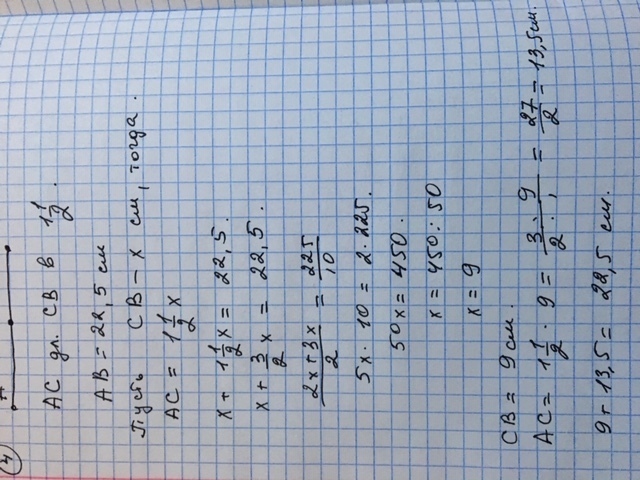 ④
A
AC дл. CB в 1 1/2.
AB = 22,5 см
Пусть CB - x см, тогда.
AC = 1 1/2 x
x + 1 1/2 x = 22,5.
x + 3/2 x = 22,5.
2x+3x/2 = 225/10
5x · 10 = 2 · 225.
50x = 450.
x = 450 : 50
x = 9
CB = 9 см.
AC = 1 1/2 · 9 = 3 · 9/2 · 1 = 27/2 = 13,5 см.
9 + 13,5 = 22,5 см.